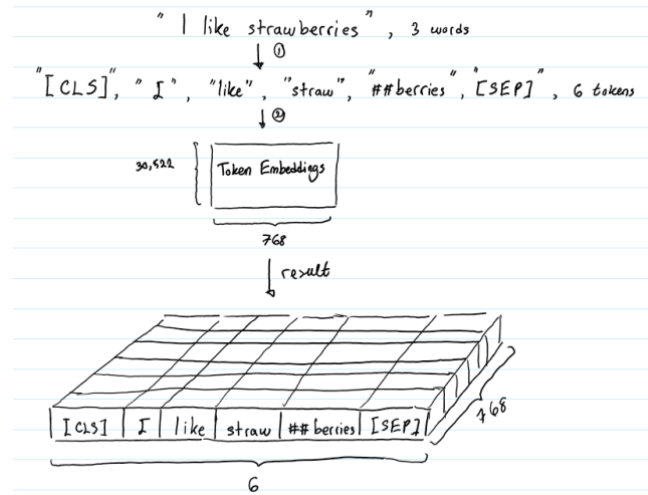 " I like strawberries " , 3 words
①
"[CLS]", " I" , "like" , "straw", "##berries" , "[SEP]" , 6 tokens
②
30,522
Token Embeddings
768
result
[CLS] I like straw ##berries [SEP]
768
6